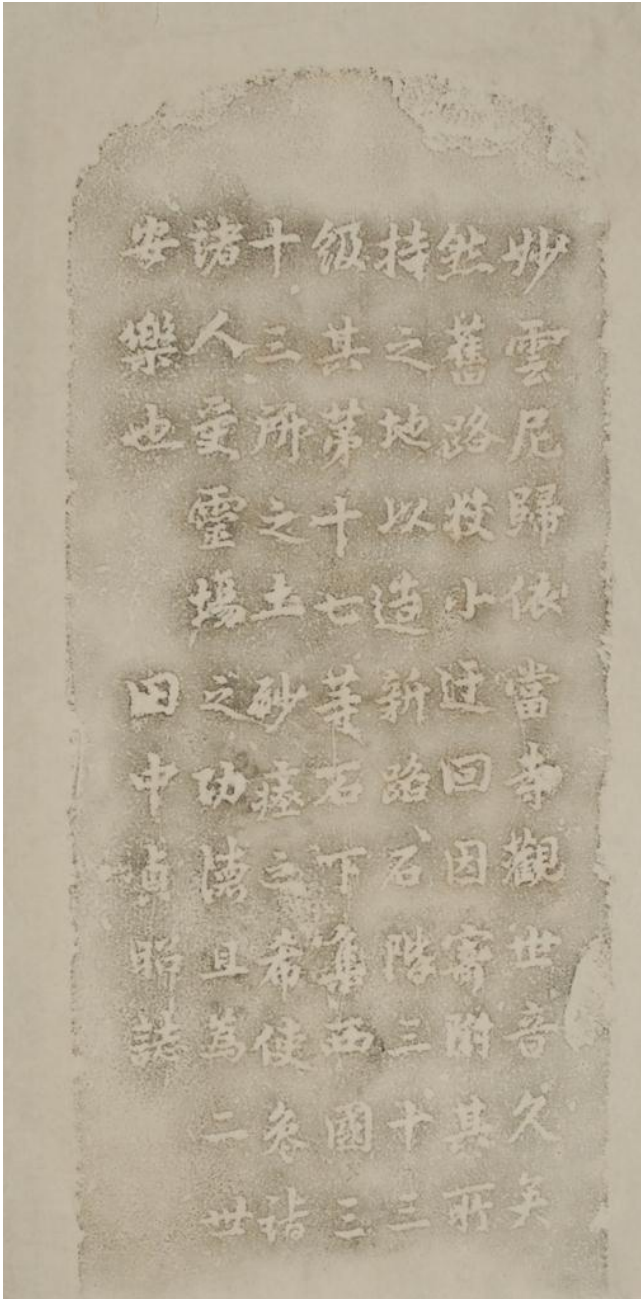 妙雲尼歸依當寺觀世音久矣
然舊路狹小迂回因寄附其所
持之地以造新路石階三十三
級其第十七等石下集西國三
十三所之土砂瘞之希使参詣
諸人受靈場之功德且為二世
安樂也 田中貞昭誌